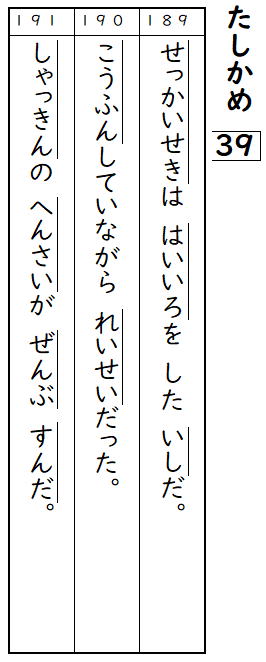 たしかめ
39
189
せっかいせきは はいいろを した いしだ。
190
こうふんしていながら れいせいだった。
191
しゃっきんの へんさいが ぜんぶ すんだ。